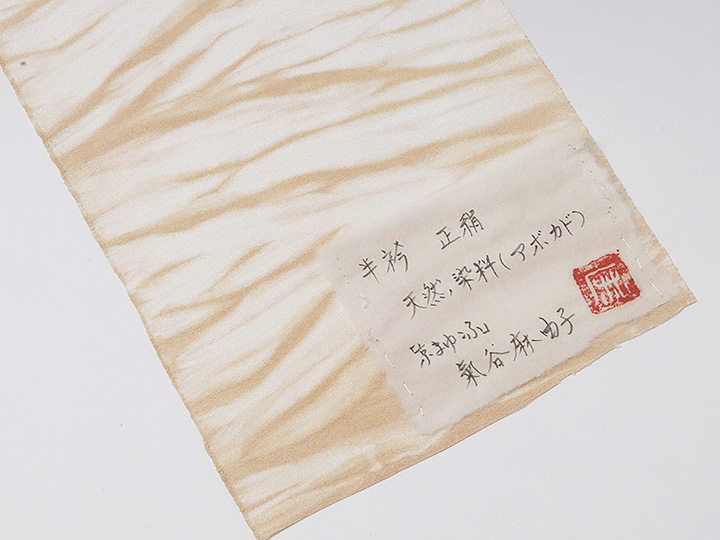 半衿 正絹
天然染料(アボカド)
京まゆふ
氣谷麻由子
麻